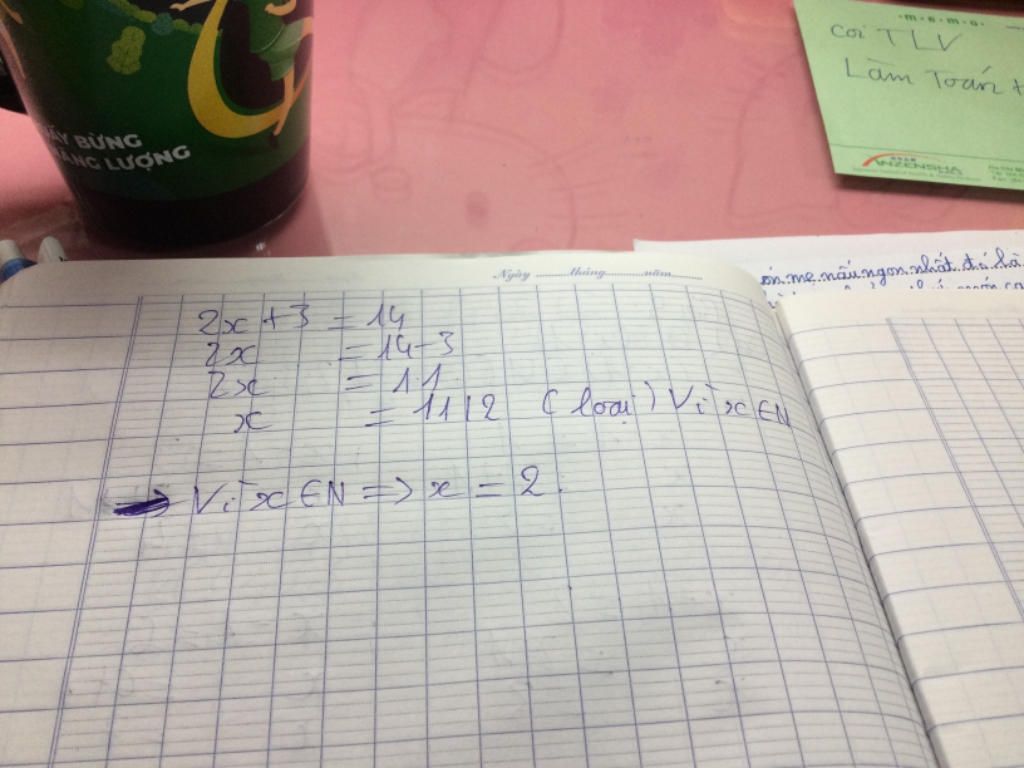 ẤY BỪNG
ĂNG LƯỢNG
m e m o
Coi TLV
Làm Toán
ANZENSHA
Ngày tháng năm
ón mẹ nấu ngon nhất đó là
2x + 3 = 14
2x = 14 - 3
2x = 11
x = 11/2 (loại) Vì x ∈ N
→ Vì x ∈ N => x = 2.